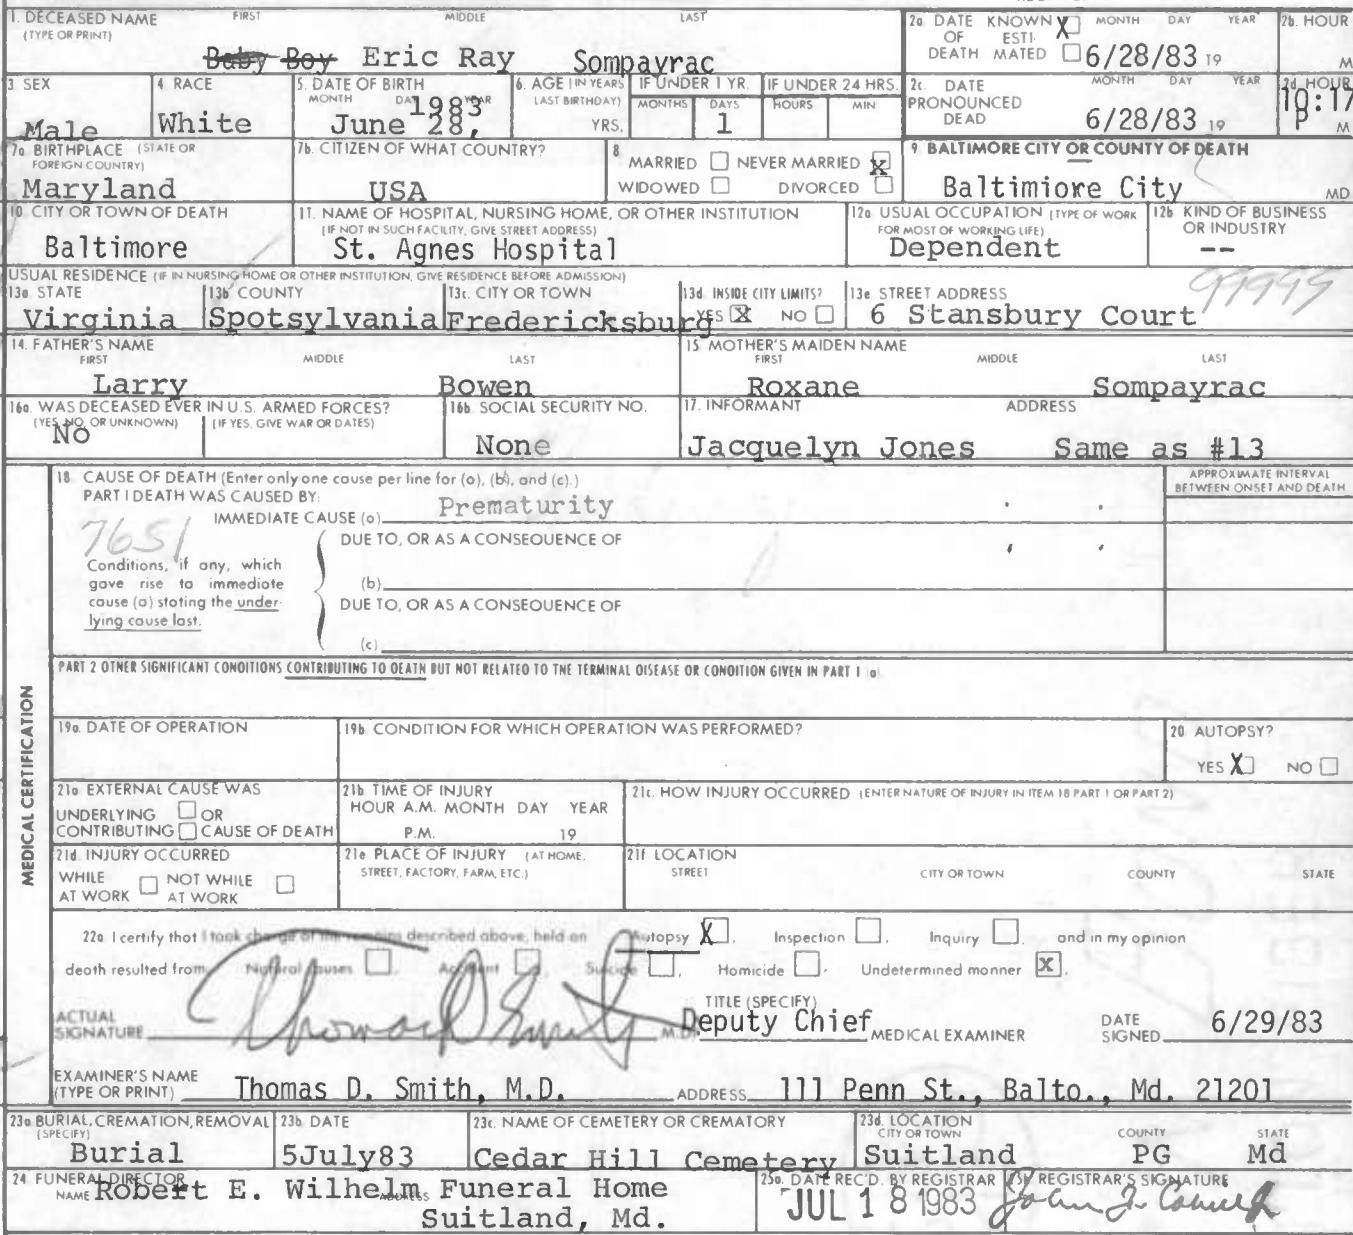 1. DECEASED NAME FIRST MIDDLE LAST
(TYPE OR PRINT)
Baby Boy Eric Ray Sompayrac
2a. DATE OF DEATH KNOWN X ESTIMATED MONTH DAY YEAR
6/28/83 19
2b. HOUR
M
3 SEX
Male
4. RACE
White
5. DATE OF BIRTH
MONTH DAY YEAR
June 28, 1983
6. AGE (IN YEARS LAST BIRTHDAY)
YRS.
IF UNDER 1 YR.
MONTHS DAYS
1
IF UNDER 24 HRS.
HOURS MIN
2c. DATE PRONOUNCED DEAD MONTH DAY YEAR
6/28/83 19
2d. HOUR
10:17
P M
7a. BIRTHPLACE (STATE OR FOREIGN COUNTRY)
Maryland
7b. CITIZEN OF WHAT COUNTRY?
USA
8.
MARRIED NEVER MARRIED X
WIDOWED DIVORCED
9. BALTIMORE CITY OR COUNTY OF DEATH
Baltimiore City MD
10. CITY OR TOWN OF DEATH
Baltimore
11. NAME OF HOSPITAL, NURSING HOME, OR OTHER INSTITUTION
(IF NOT IN SUCH FACILITY, GIVE STREET ADDRESS)
St. Agnes Hospital
12a. USUAL OCCUPATION (TYPE OF WORK FOR MOST OF WORKING LIFE)
Dependent
12b. KIND OF BUSINESS OR INDUSTRY
--
USUAL RESIDENCE (IF IN NURSING HOME OR OTHER INSTITUTION, GIVE RESIDENCE BEFORE ADMISSION)
13a. STATE
Virginia
13b. COUNTY
Spotsylvania
13c. CITY OR TOWN
Fredericksburg
13d. INSIDE CITY LIMITS?
YES X NO
13e. STREET ADDRESS
6 Stansbury Court
99999
14. FATHER'S NAME
FIRST MIDDLE LAST
Larry Bowen
15. MOTHER'S MAIDEN NAME
FIRST MIDDLE LAST
Roxane Sompayrac
16a. WAS DECEASED EVER IN U.S. ARMED FORCES?
(YES, NO, OR UNKNOWN) (IF YES, GIVE WAR OR DATES)
No
16b. SOCIAL SECURITY NO.
None
17. INFORMANT ADDRESS
Jacquelyn Jones Same as #13
MEDICAL CERTIFICATION
18. CAUSE OF DEATH (Enter only one cause per line for (a), (b), and (c).)
PART I DEATH WAS CAUSED BY:
IMMEDIATE CAUSE (a) Prematurity
APPROXIMATE INTERVAL BETWEEN ONSET AND DEATH
7651
DUE TO, OR AS A CONSEQUENCE OF
Conditions, if any, which gave rise to immediate cause (a) stating the underlying cause last.
(b)
DUE TO, OR AS A CONSEQUENCE OF
(c)
PART 2 OTHER SIGNIFICANT CONDITIONS CONTRIBUTING TO DEATH BUT NOT RELATED TO THE TERMINAL DISEASE OR CONDITION GIVEN IN PART 1 (a)
19a. DATE OF OPERATION
19b. CONDITION FOR WHICH OPERATION WAS PERFORMED?
20. AUTOPSY?
YES X NO
21a. EXTERNAL CAUSE WAS
UNDERLYING OR
CONTRIBUTING CAUSE OF DEATH
21b. TIME OF INJURY
HOUR A.M. MONTH DAY YEAR
P.M. 19
21c. HOW INJURY OCCURRED (ENTER NATURE OF INJURY IN ITEM 18 PART 1 OR PART 2)
21d. INJURY OCCURRED
WHILE AT WORK NOT WHILE AT WORK
21e. PLACE OF INJURY (AT HOME, STREET, FACTORY, FARM, ETC.)
21f. LOCATION
STREET CITY OR TOWN COUNTY STATE
22a. I certify that I took charge of the remains described above, held an Autopsy X, Inspection, Inquiry, and in my opinion
death resulted from Natural Causes, Accident, Suicide, Homicide, Undetermined manner X,
ACTUAL SIGNATURE Thomas D Smith M.D.
TITLE (SPECIFY)
Deputy Chief MEDICAL EXAMINER
DATE SIGNED 6/29/83
EXAMINER'S NAME (TYPE OR PRINT) Thomas D. Smith, M.D. ADDRESS 111 Penn St., Balto., Md. 21201
23a. BURIAL, CREMATION, REMOVAL (SPECIFY)
Burial
23b. DATE
5July83
23c. NAME OF CEMETERY OR CREMATORY
Cedar Hill Cemetery
23d. LOCATION
CITY OR TOWN COUNTY STATE
Suitland PG Md
24. FUNERAL DIRECTOR
NAME Robert E. Wilhelm Funeral Home
ADDRESS
Suitland, Md.
25a. DATE REC'D. BY REGISTRAR
JUL 18 1983
25b. REGISTRAR'S SIGNATURE